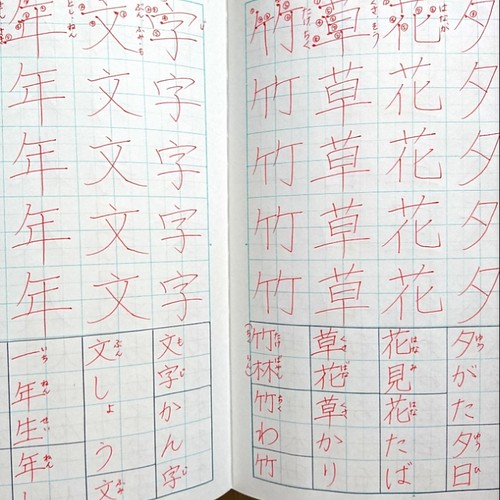 夕夕夕夕夕
夕がた夕日
花花花花花
花見花たば
草草草草草
草花草かり
竹竹竹竹竹
竹林竹わ竹
字字字字字
文字かん字
文文文文文
文しょう文
年年年年年
一年生年